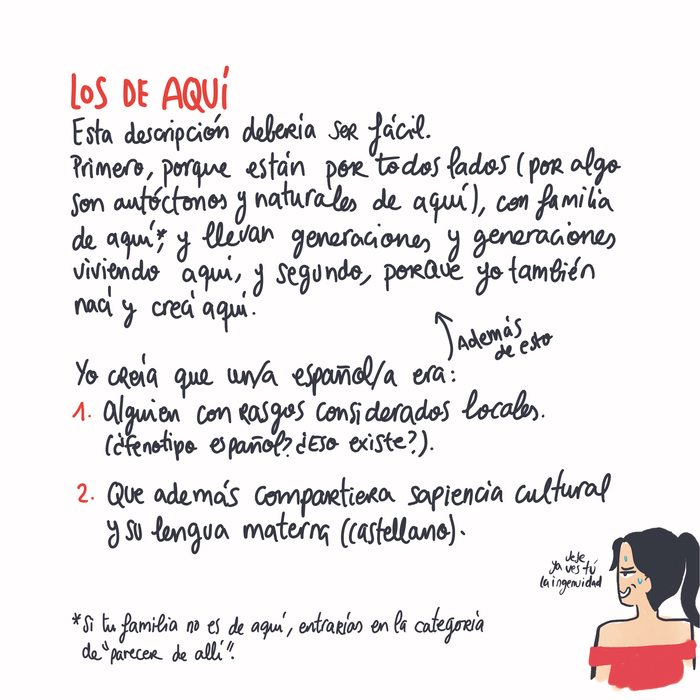 LOS DE AQUÍ
Esta descripción debería ser fácil.
Primero, porque están por todos lados (por algo
son autóctonos y naturales de aquí), con familia
de aquí*, y llevan generaciones y generaciones
viviendo aquí, y segundo, porque yo también
nací y crecí aquí.
Además
de esto
Yo creía que un/a español/a era:
1. Alguien con rasgos considerados locales.
(¿fenotipo español? ¿Eso existe?).
2. Que además compartiera sapiencia cultural
y su lengua materna (castellano).
jeje
ya ves tú
la ingenuidad
*Si tu familia no es de aquí, entrarías en la categoría
de "parecer de allí".